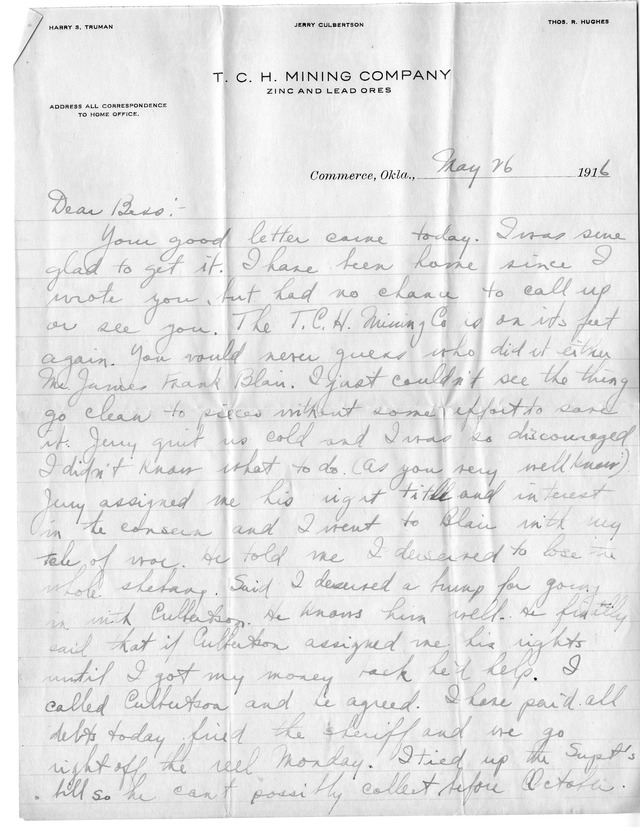 HARRY S. TRUMAN
JERRY CULBERTSON
THOS. R. HUGHES
T. C. H. MINING COMPANY
ZINC AND LEAD ORES
ADDRESS ALL CORRESPONDENCE
TO HOME OFFICE.
Commerce, Okla., May 26 1916
Dear Bess:-
Your good letter came today. I was sure
glad to get it. I have been home since I
wrote you, but had no chance to call up
or see you. The T.C.H. Mining Co is on its feet
again. You would never guess who did it either
Mr James Frank Blair. I just couldn't see the thing
go clean to pieces without some effort to save
it. Jerry quit us cold and I was so discouraged
I didn't know what to do. (As you very well know)
Jerry assigned me his right title and interest
in the concern and I went to Blair with my
tale of woe. He told me I deserved to lose the
whole shebang. Said I deserved a bump for going
in with Culbertson. He knows him well. He finally
said that if Culbertson assigned me his rights
until I got my money back he'd help. I
called Culbertson and he agreed. I have paid all
debts today fired the sheriff and we go
right off the reel Monday. I tied up the Supt's
bill so he can't possibly collect before October.